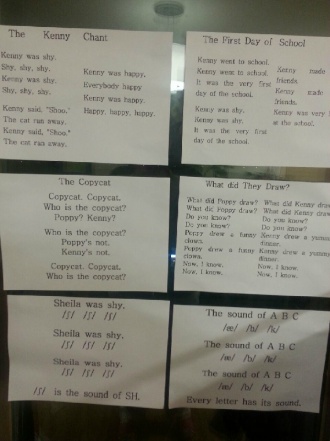 The Kenny Chant
Kenny was shy.
Shy, shy, shy.
Kenny was shy.
Shy, shy, shy.
Kenny said, "Shoo."
The cat ran away.
Kenny said, "Shoo."
The cat ran away.
Kenny was happy.
Everybody happy
Kenny was happy.
Happy, happy, happy.
The First Day of School
Kenny went to school.
Kenny went to school.
It was the very first
day of the school.
Kenny was shy.
Kenny was shy.
It was the very first
Kenny made
friends.
Kenny made
friends.
Kenny was very
at the school.
The Copycat
Copycat. Copycat.
Who is the copycat?
Poppy? Kenny?
Who is the copycat?
Poppy's not.
Kenny's not.
Copycat. Copycat.
Who is the copycat?
What did They Draw?
What did Poppy draw?
What did Poppy draw?
Do you know?
Do you know?
Poppy drew a funny
clown.
Poppy drew a funny
clown.
Now, I know.
Now, I know.
What did Kenny draw
What did Kenny draw
Do you know?
Do you know?
Kenny drew a yummy
dinner.
Kenny drew a yummy
dinner.
Now, I know.
Now, I know.
Sheila was shy.
/ʃ/ /ʃ/ /ʃ/
Sheila was shy.
/ʃ/ /ʃ/ /ʃ/
Sheila was shy.
/ʃ/ /ʃ/ /ʃ/
/ʃ/ is the sound of SH.
The sound of A B C
/æ/ /b/ /k/
The sound of A B C
/æ/ /b/ /k/
The sound of A B C
/æ/ /b/ /k/
Every letter has its sound.